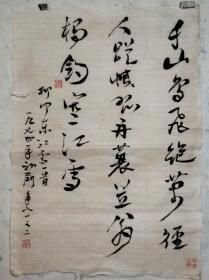 千山鳥飛絕萬徑
人蹤滅孤舟蓑笠翁
獨釣寒江雪
柳河東江雪一首
一九七四年